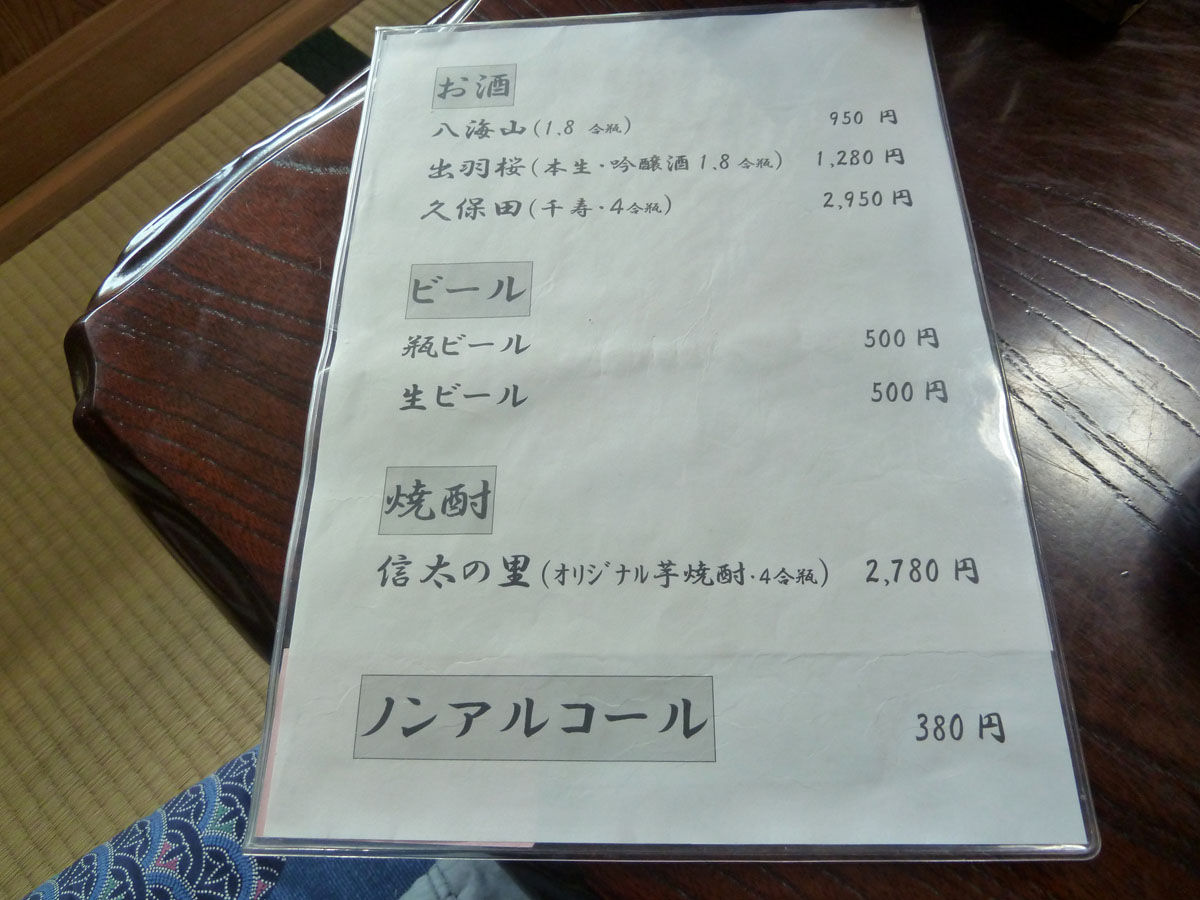 お酒
八海山(1.8 合瓶) 950 円
出羽桜(本生・吟醸酒 1.8 合瓶) 1,280 円
久保田(千寿・4合瓶) 2,950 円
ビール
瓶ビール 500 円
生ビール 500 円
焼酎
信太の里(オリジナル芋焼酎・4合瓶) 2,780 円
ノンアルコール 380 円